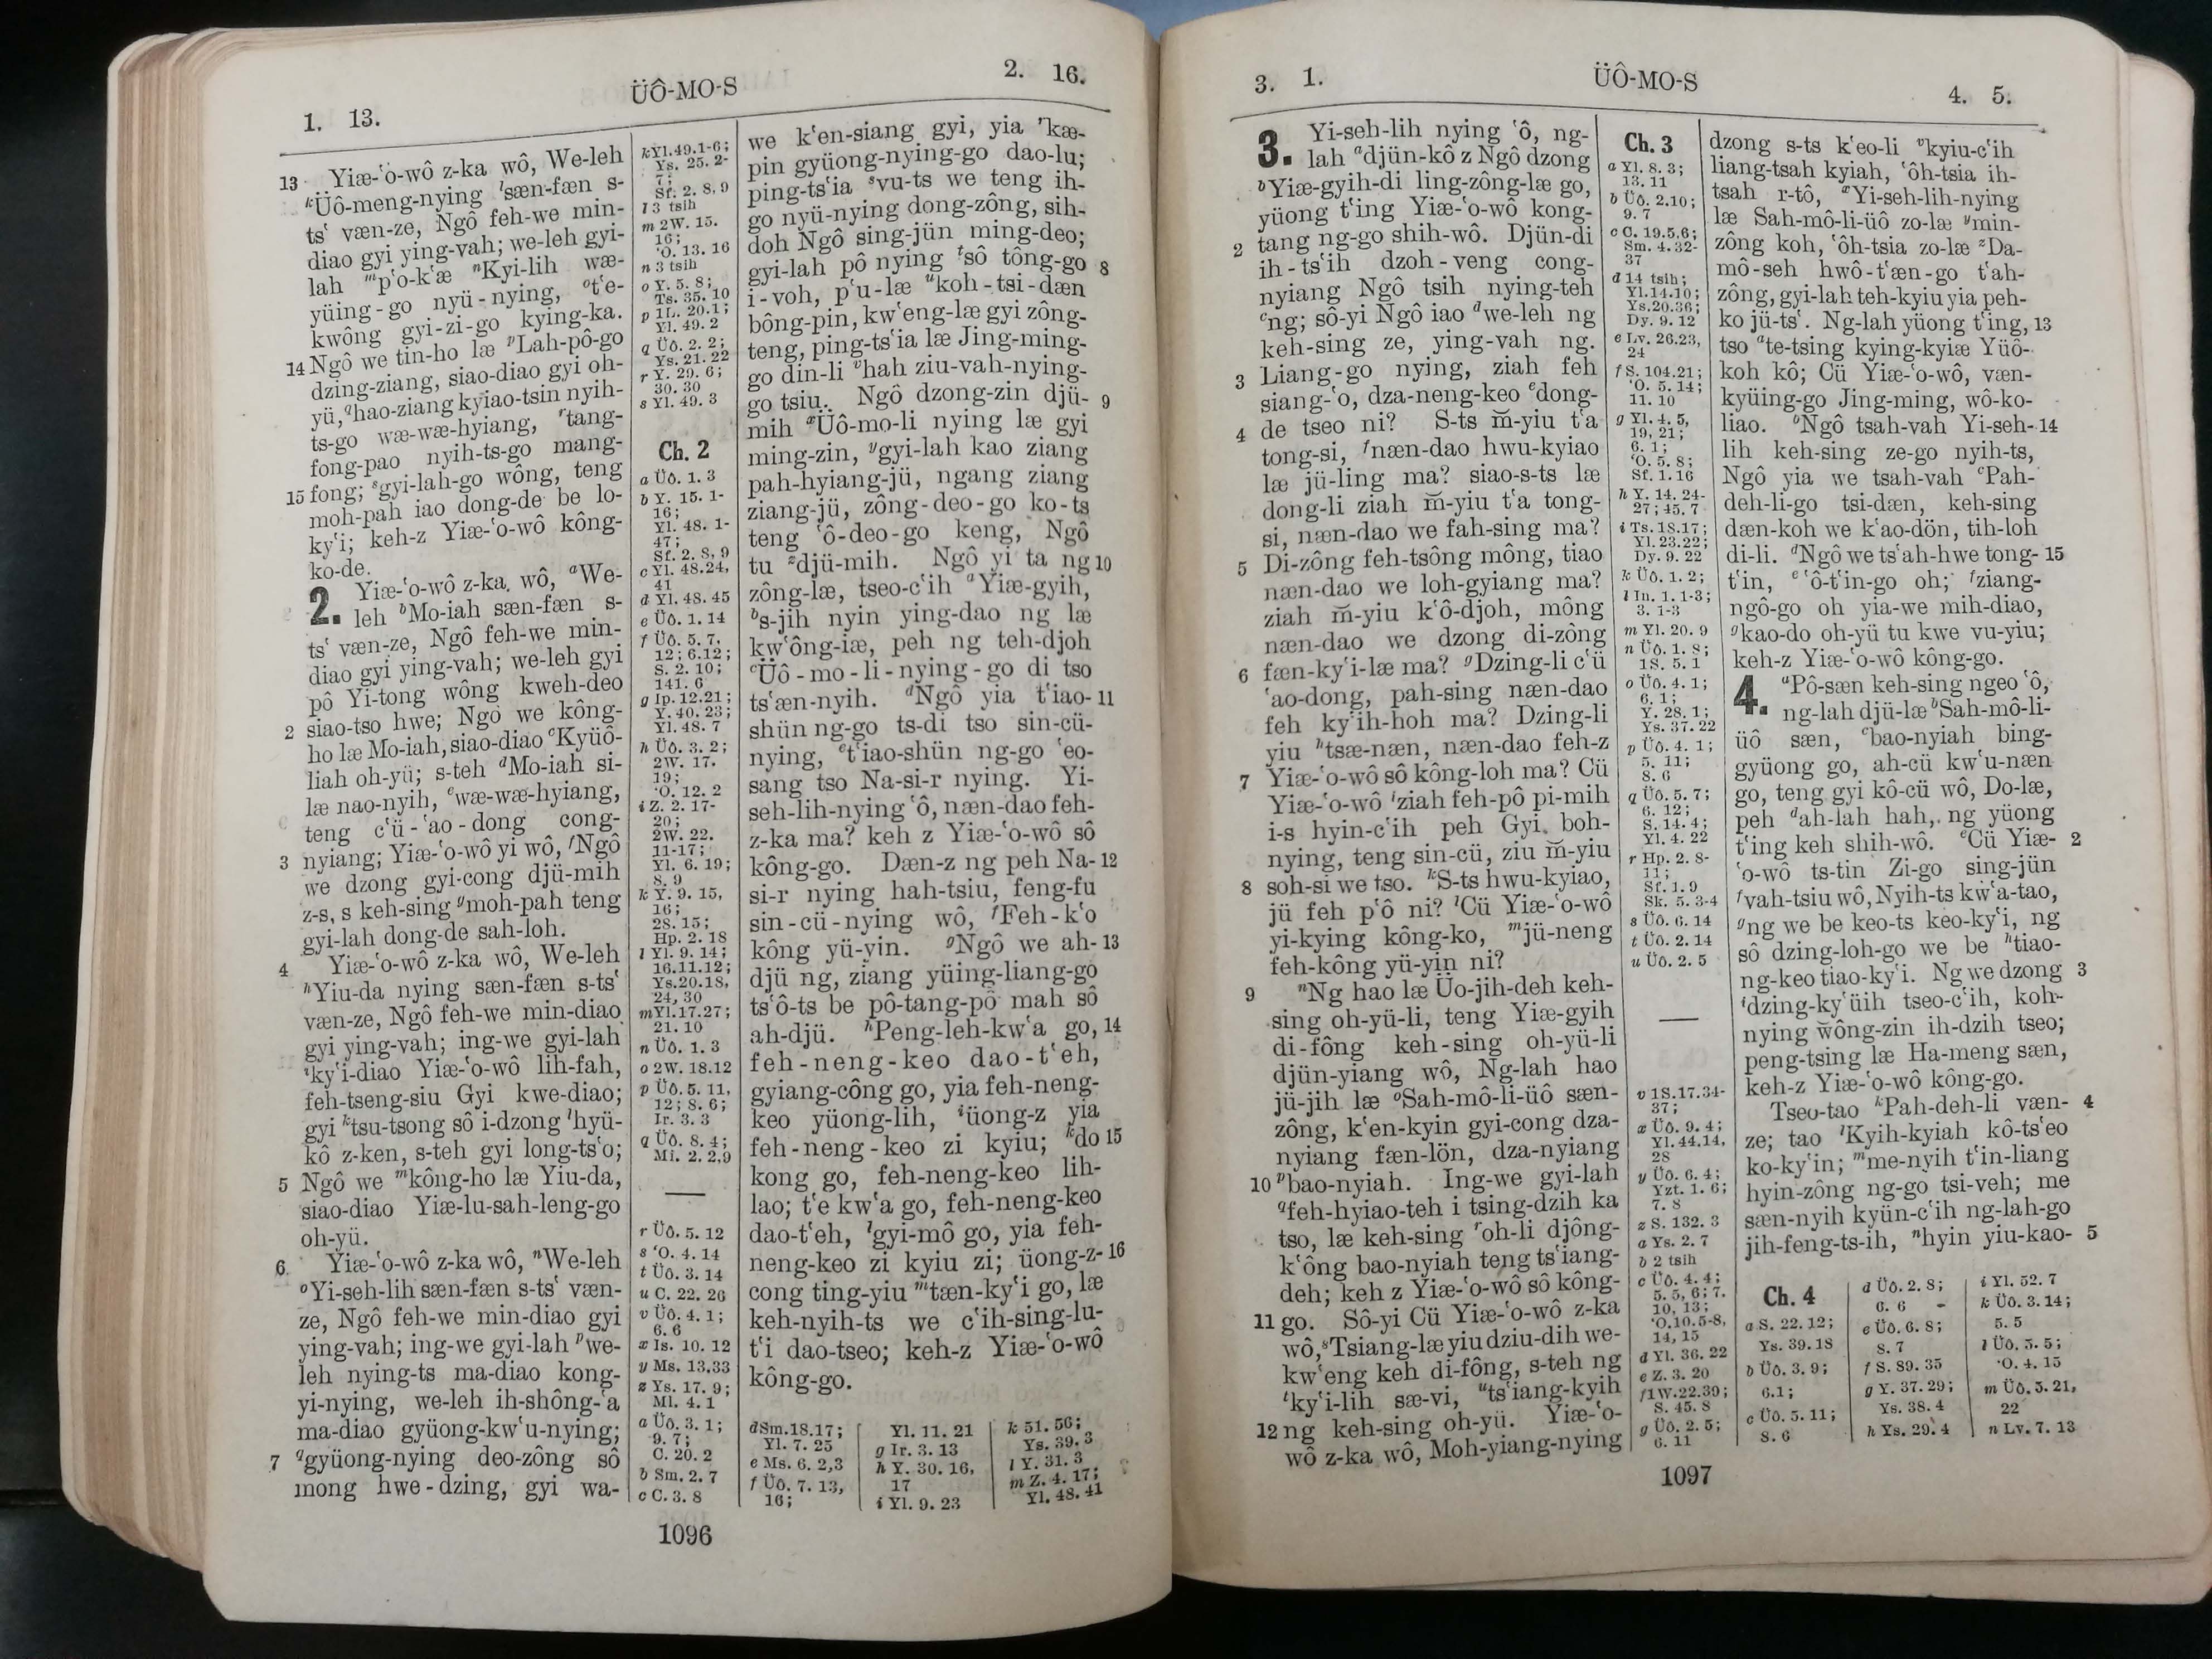 1. 13.
ÜÔ-MO-S
2. 16.
13 Yiæ-ʻo-wô z-ka wô, We-leh
kÜô-meng-nying lsæn-fæn s-
tsʻ væn-ze, Ngô feh-we min-
diao gyi ying-vah; we-leh gyi-
lah mpʻo-kʻæ nKyi-lih wæ-
yüing-go nyü-nying, otʻe-
kwông gyi-zi-go kying-ka.
14 Ngô we tin-ho læ pLah-pô-go
dzing-ziang, siao-diao gyi oh-
yü, qhao-ziang kyiao-tsin nyih-
ts-go wæ-wæ-hyiang, rtang-
fong-pao nyih-ts-go mang-
15 fong; sgyi-lah-go wông, teng
moh-pah iao dong-de be lo-
kyʻi; keh-z Yiæ-ʻo-wô kông-
ko-de.
2. Yiæ-ʻo-wô z-ka wô, aWe-
leh bMo-iah sæn-fæn s-
tsʻ væn-ze, Ngô feh-we min-
diao gyi ying-vah; we-leh gyi
pô Yi-tong wông kweh-deo
2 siao-tso hwe; Ngô we kông-
ho læ Mo-iah, siao-diao cKyüô-
liah oh-yü; s-teh dMo-iah si-
læ nao-nyih, ewæ-wæ-hyiang,
teng cʻü-ʻao-dong cong-
3 nyiang; Yiæ-ʻo-wô yi wô, fNgô
we dzong gyi-cong djü-mih
z-s, s keh-sing gmoh-pah teng
gyi-lah dong-de sah-loh.
4 Yiæ-ʻo-wô z-ka wô, We-leh
hYiu-da nying sæn-fæn s-tsʻ
væn-ze, Ngô feh-we min-diao
gyi ying-vah; ing-we gyi-lah
ikyʻi-diao Yiæ-ʻo-wô lih-fah,
feh-tseng-siu Gyi kwe-diao;
gyi ktsu-tsong sô i-dzong lhyü-
kô z-ken, s-teh gyi long-tsʻo;
5 Ngô we mkông-ho læ Yiu-da,
siao-diao Yiæ-lu-sah-leng-go
oh-yü.
6 Yiæ-ʻo-wô z-ka wô, nWe-leh
oYi-seh-lih sæn-fæn s-tsʻ væn-
ze, Ngô feh-we min-diao gyi
ying-vah; ing-we gyi-lah pwe-
leh nying-ts ma-diao kong-
yi-nying, we-leh ih-shông-ʻa
ma-diao gyüong-kwʻu-nying;
7 qgyüong-nying deo-zông sô
mong hwe-dzing, gyi wa-
k Yl. 49. 1-6;
Ys. 25. 2-
7;
Sf. 2. 8, 9
l 3 tsih
m 2W. 15.
16;
ʻO. 13. 16
n 3 tsih
o Y. 5. 8;
Ts. 35. 10
p 1L. 20.1;
Yl. 49. 2
q Üô. 2. 2;
Ys. 21. 22
r Y. 29. 6;
30. 30
s Yl. 49. 3
Ch. 2
a Üô. 1. 3
b Y. 15. 1-
16;
Yl. 48. 1-
47;
Sf. 2. 8, 9
c Yl. 48.24,
41
d Yl. 48. 45
e Üô. 1. 14
f Üô. 5. 7,
12; 6.12;
S. 2. 10;
141. 6
g Ip. 12.21;
Y. 40. 23;
Yl. 48. 7
h Üô. 3. 2;
2W. 17.
19;
ʻO. 12. 2
i Z. 2. 17-
20;
2W. 22.
11-17;
Yl. 6. 19;
8. 9
k Y. 9. 15,
16;
28. 15;
Hp. 2. 18
l Yl. 9. 14;
16.11.12;
Ys.20.18,
24, 30
m Yl.17.27;
21. 10
n Üô. 1. 3
o 2W. 18.12
p Üô. 5. 11,
12; 8. 6;
Ir. 3. 3
q Üô. 8. 4;
Mi. 2. 2,9
r Üô. 5. 12
s ʻO. 4. 14
t Üô. 3. 14
u C. 22. 26
v Üô. 4. 1;
6. 6
x Is. 10. 12
y Ms. 13.33
z Ys. 17. 9;
Ml. 4. 1
a Üô. 3. 1;
9. 7;
C. 20. 2
b Sm. 2. 7
c C. 3. 8
we kʻen-siang gyi, yia rkæ-
pin gyüong-nying-go dao-lu;
ping-tsʻia svu-ts we teng ih-
go nyü-nying dong-zông, sih-
doh Ngô sing-jün ming-deo;
gyi-lah pô nying tsô tông-go 8
i-voh, pʻu-læ ukoh-tsi-dæn
bông-pin, kwʻeng-læ gyi zông-
teng, ping-tsʻia læ Jing-ming-
go din-li vhah ziu-vah-nying-
go tsiu. Ngô dzong-zin djü- 9
mih xÜô-mo-li nying læ gyi
ming-zin, ygyi-lah kao ziang
pah-hyiang-jü, ngang ziang
ziang-jü, zông-deo-go ko-ts
teng ʻô-deo-go keng, Ngô
tu zdjü-mih. Ngô yi ta ng 10
zông-læ, tseo-cʻih aYiæ-gyih,
bs-jih nyin ying-dao ng læ
kwʻông-iæ, peh ng teh-djoh
cÜô-mo-li-nying-go di tso
tsʻæn-nyih. dNgô yia tʻiao- 11
shün ng-go ts-di tso sin-cü-
nying, etʻiao-shün ng-go ʻeo-
sang tso Na-si-r nying. Yi-
seh-lih-nying ʻô, næn-dao feh-
z-ka ma? keh z Yiæ-ʻo-wô sô
kông-go. Dæn-z ng peh Na- 12
si-r nying hah-tsiu, feng-fu
sin-cü-nying wô, fFeh-kʻo
kông yü-yin. gNgô we ah- 13
djü ng, ziang yüing-liang-go
tsʻô-ts be pô-tang-pô mah sô
ah-djü. hPeng-leh-kwʻa go, 14
feh-neng-keo dao-tʻeh,
gyiang-công go, yia feh-neng-
keo yüong-lih, iüong-z yia
feh-neng-keo zi kyiu; kdo 15
kong go, feh-neng-keo lih-
lao; tʻe kwʻa go, feh-neng-keo
dao-tʻeh, lgyi-mô go, yia feh-
neng-keo zi kyiu zi; üong-z- 16
cong ting-yiu mtæn-kyʻi go, læ
keh-nyih-ts we cʻih-sing-lu-
tʻi dao-tseo; keh-z Yiæ-ʻo-wô
kông-go.
d Sm. 18.17;
Yl. 7. 25
e Ms. 6. 2,3
f Üô. 7. 13,
16;
Yl. 11. 21
g Ir. 3. 13
h Y. 30. 16,
17
i Yl. 9. 23
k 51. 56;
Ys. 39. 3
l Y. 31. 3
m Z. 4. 17;
Yl. 48. 41
1096
3. 1.
ÜÔ-MO-S
4. 5.
3. Yi-seh-lih nying ʻô, ng-
lah adjün-kô z Ngô dzong
bYiæ-gyih-di ling-zông-læ go,
yüong tʻing Yiæ-ʻo-wô kong-
2 tang ng-go shih-wô. Djün-di
ih-tsʻih dzoh-veng cong-
nyiang Ngô tsih nying-teh
cng; sô-yi Ngô iao dwe-leh ng
keh-sing ze, ying-vah ng.
3 Liang-go nying, ziah feh
siang-ʻo, dza-neng-keo edong-
4 de tseo ni? S-ts m̆-yiu tʻa
tong-si, fnæn-dao hwu-kyiao
læ jü-ling ma? siao-s-ts læ
dong-li ziah m̆-yiu tʻa tong-
si, næn-dao we fah-sing ma?
5 Di-zông feh-tsông mông, tiao
næn-dao we loh-gyiang ma?
ziah m̆-yiu kʻô-djoh, mông
næn-dao we dzong di-zông
6 fæn-kyʻi-læ ma? gDzing-li cʻü
ʻao-dong, pah-sing næn-dao
feh kyʻih-hoh ma? Dzing-li
yiu htsæ-næn, næn-dao feh-z
7 Yiæ-ʻo-wô sô kông-loh ma? Cü
Yiæ-ʻo-wô iziah feh-pô pi-mih
i-s hyin-cʻih peh Gyi boh-
nying, teng sin-cü, ziu m̆-yiu
8 soh-si we tso. kS-ts hwu-kyiao,
jü feh pʻô ni? lCü Yiæ-ʻo-wô
yi-kying kông-ko, mjü-neng
feh-kông yü-yin ni?
9 nNg hao læ Üo-jih-deh keh-
sing oh-yü-li, teng Yiæ-gyih
di-fông keh-sing oh-yü-li
djün-yiang wô, Ng-lah hao
jü-jih læ oSah-mô-li-üô sæn-
zông, kʻen-kyin gyi-cong dza-
nyiang fæn-lön, dza-nyiang
10 pbao-nyiah. Ing-we gyi-lah
qfeh-hyiao-teh i tsing-dzih ka
tso, læ keh-sing roh-li djông-
kʻông bao-nyiah teng tsʻiang-
deh; keh z Yiæ-ʻo-wô sô kông-
11 go. Sô-yi Cü Yiæ-ʻo-wô z-ka
wô, sTsiang-læ yiu dziu-dih we-
kwʻeng keh di-fông, s-teh ng
tkyʻi-lih sæ-vi, utsʻiang-kyih
12 ng keh-sing oh-yü. Yiæ-ʻo-
wô z-ka wô, Moh-yiang-nying
Ch. 3
a Yl. 8. 3;
13. 11
b Üô. 2.10;
9. 7
c C. 19.5,6;
Sm. 4. 32-
37
d 14 tsih;
Yl.14.10;
Ys.20.36;
Dy. 9. 12
e Lv. 26.23,
24
f S. 104.21;
ʻO. 5. 14;
11. 10
g Yl. 4. 5,
19, 21;
6. 1;
ʻO. 5. 8;
Sf. 1. 16
h Y. 14. 24-
27; 45. 7
i Ts. 18.17;
Yl. 23.22;
Dy. 9. 22
k Üô. 1. 2;
l In. 1. 1-3;
3. 1-3
m Yl. 20. 9
n Üô. 1. 8;
1S. 5. 1
o Üô. 4. 1;
6. 1;
Y. 28. 1;
Ys. 37. 22
p Üô. 4. 1;
5. 11;
8. 6
q Üô. 5. 7;
6. 12;
S. 14. 4;
Yl. 4. 22
r Hp. 2. 8-
11;
Sf. 1. 9
Sk. 5. 3-4
s Üô. 6. 14
t Üô. 2. 14
u Üô. 2. 5
v 1S.17.34-
37;
x Üô. 9. 4;
Yl. 44.14,
28
y Üô. 6. 4;
Yzt. 1. 6;
7. 8
z S. 132. 3
a Ys. 2. 7
b 2 tsih
c Üô. 4. 4;
5. 5, 6; 7.
10, 13;
ʻO.10.5-8,
14, 15
d Yl. 36. 22
e Z. 3. 20
f 1W.22.39;
S. 45. 8
g Üô. 2. 5;
6. 11
dzong s-ts kʻeo-li vkyiu-cʻih
liang-tsah kyiah, ʻôh-tsia ih-
tsah r-tô, xYi-seh-lih-nying
læ Sah-mô-li-üô zo-læ ymin-
zông koh, ʻôh-tsia zo-læ zDa-
mô-seh hwô-tʻæn-go tʻah-
zông, gyi-lah teh-kyiu yia peh-
ko jü-tsʻ. Ng-lah yüong tʻing, 13
tso ate-tsing kying-kyiæ Yüô-
koh kô; Cü Yiæ-ʻo-wô, væn-
kyüing-go Jing-ming, wô-ko-
liao. bNgô tsah-vah Yi-seh- 14
lih keh-sing ze-go nyih-ts,
Ngô yia we tsah-vah cPah-
deh-li-go tsi-dæn, keh-sing
dæn-koh we kʻao-dön, tih-loh
di-li. dNgô we tsʻah-hwe tong- 15
tʻin, eʻô-tʻin-go oh; fziang-
ngô-go oh yia-we mih-diao,
gkao-do oh-yü tu kwe vu-yiu;
keh-z Yiæ-ʻo-wô kông-go.
4. aPô-sæn keh-sing ngeo ʻô,
ng-lah djü-læ bSah-mô-li-
üô sæn, cbao-nyiah bing-
gyüong go, ah-cü kwʻu-næn
go, teng gyi kô-cü wô, Do-læ,
peh dah-lah hah, ng yüong
tʻing keh shih-wô. eCü Yiæ- 2
ʻo-wô ts-tin Zi-go sing-jün
fvah-tsiu wô, Nyih-ts kwʻa-tao,
gng we be keo-ts keo-kyʻi, ng
sô dzing-loh-go we be htiao-
ng-keo tiao-kyʻi. Ng we dzong 3
idzing-kyʻüih tseo-cʻih, koh-
nying w̆ông-zin ih-dzih tseo;
peng-tsing læ Ha-meng sæn,
keh-z Yiæ-ʻo-wô kông-go.
Tseo-tao kPah-deh-li væn- 4
ze; tao lKyih-kyiah kô-tsʻeo
ko-kyʻin; mme-nyih tʻin-liang
hyin-zông ng-go tsi-veh; me
sæn-nyih kyün-cʻih ng-lah-go
jih-feng-ts-ih, nhyin yiu-kao- 5
Ch. 4
a S. 22. 12;
Ys. 39. 18
b Üô. 3. 9;
6.1;
c Üô. 5. 11;
8. 6
d Üô. 2. 8;
6. 6
e Üô. 6. 8;
8. 7
f S. 89. 35
g Y. 37. 29;
Ys. 38. 4
h Ys. 29. 4
i Yl. 52. 7
k Üô. 3. 14;
5. 5
l Üô. 5. 5;
ʻO. 4. 15
m Üô. 5. 21,
22
n Lv. 7. 13
1097